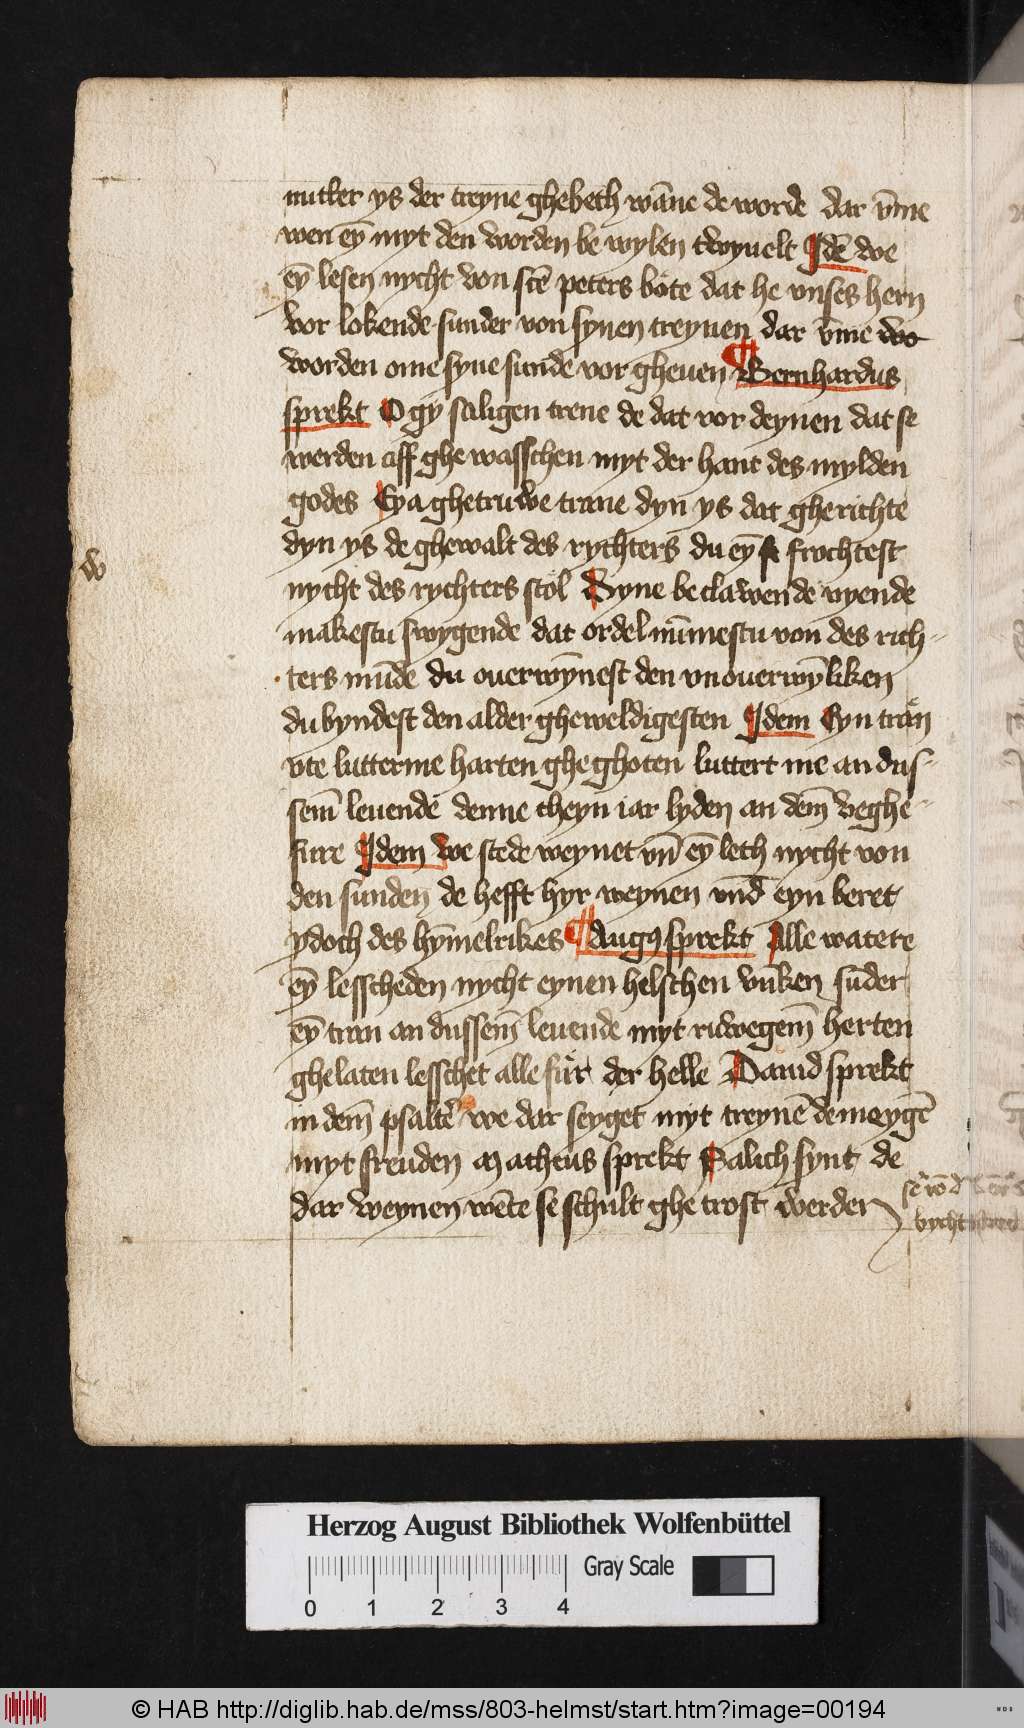 nutler ys der treyne ghebeth wāne de worde dar v̄me
wen eȳ myt den worden be wylen twyuelt Jdē we
eȳ lesen nycht von scē peters bote dat he vnses hern
vor lokende sunder von synen treynen dar v̄me wo
worden ome syne sunde vor gheuen ¶ Bernhardus
sprekt O gy saligen trene de dat vor deynen dat se
werden aff ghe wasschen myt der hant des mylden
godes Eya ghetruwe trane dyn ys dat gherichte
dyn ys de ghewalt des rychters du eȳ frochtest
w
nycht des rychters stol Dyne be clawende vyende
makestu swygende dat ordel nūmestu von des rich-
ters mūde du ouerwȳnest den vnouerwȳliken
du byndest den alder gheweldigesten Jdem Eyn tran
vte lutterme harten gheghoten luttert me an dus-
sem̄ leuende denne theyn iar lyden an dem̄ veghe-
fure Jdem we stede weynet vn̄ eȳ leth nycht von
den sunden de hefft hyr weynen vnd eyn beret
ydoch des hȳmelrikes ¶ Augꝰ sprekt Alle watere
eȳ lesscheden nycht eynen helschen vn̄ken sūder
eȳ tran an dussem̄ leuende myt ruwegem̄ herten
ghelaten lesschet alle fur der helle Dauid sprekt
in dem̄ psaltē we dar seyget myt treynē de meygē
myt freuden Matheus sprekt Salich synt de
dar weynen wēte se schult ghe trost werden
bycht
Herzog August Bibliothek Wolfenbüttel
Gray Scale
0 1 2 3 4
© HAB http://diglib.hab.de/mss/803-helmst/start.htm?image=00194